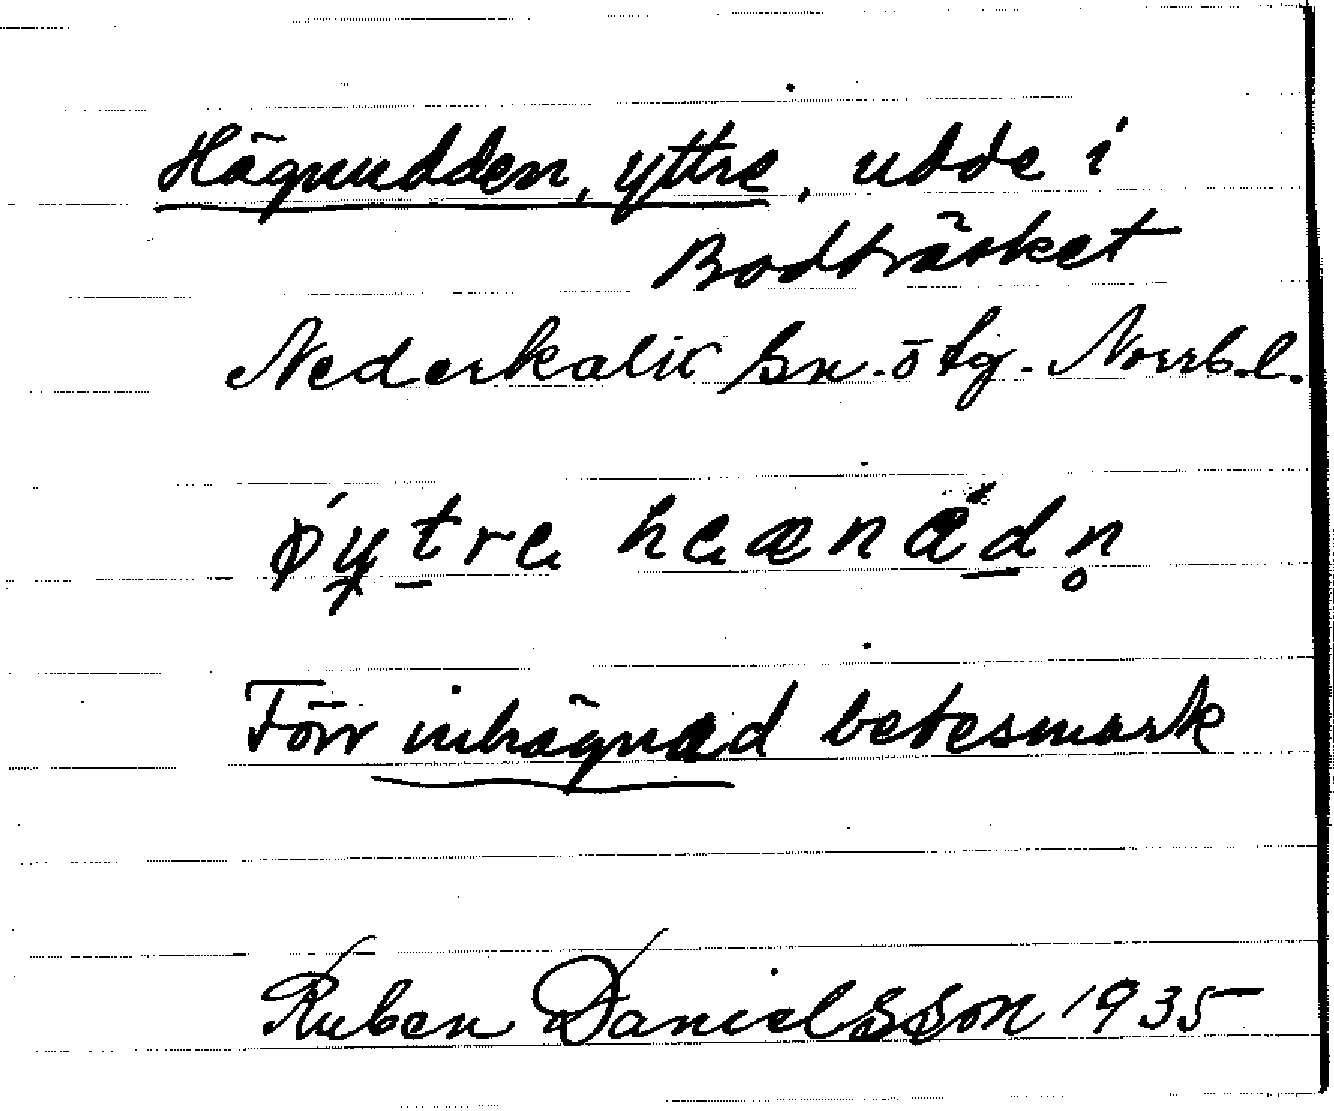 Hägnudden, yttre, udde i
Bodträsket
Nederkalix sn. ö tg. Norrb.l.
Förr inhägnad betesmark
Ruben Danielsson 1935